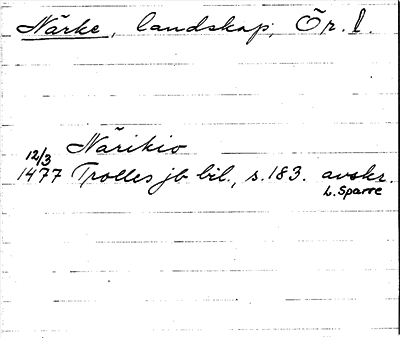 Närke, landskap, Ör. l.
Närikio
12/3
1477 Trolles jb bil., s. 183. avskr.
L. Sparre